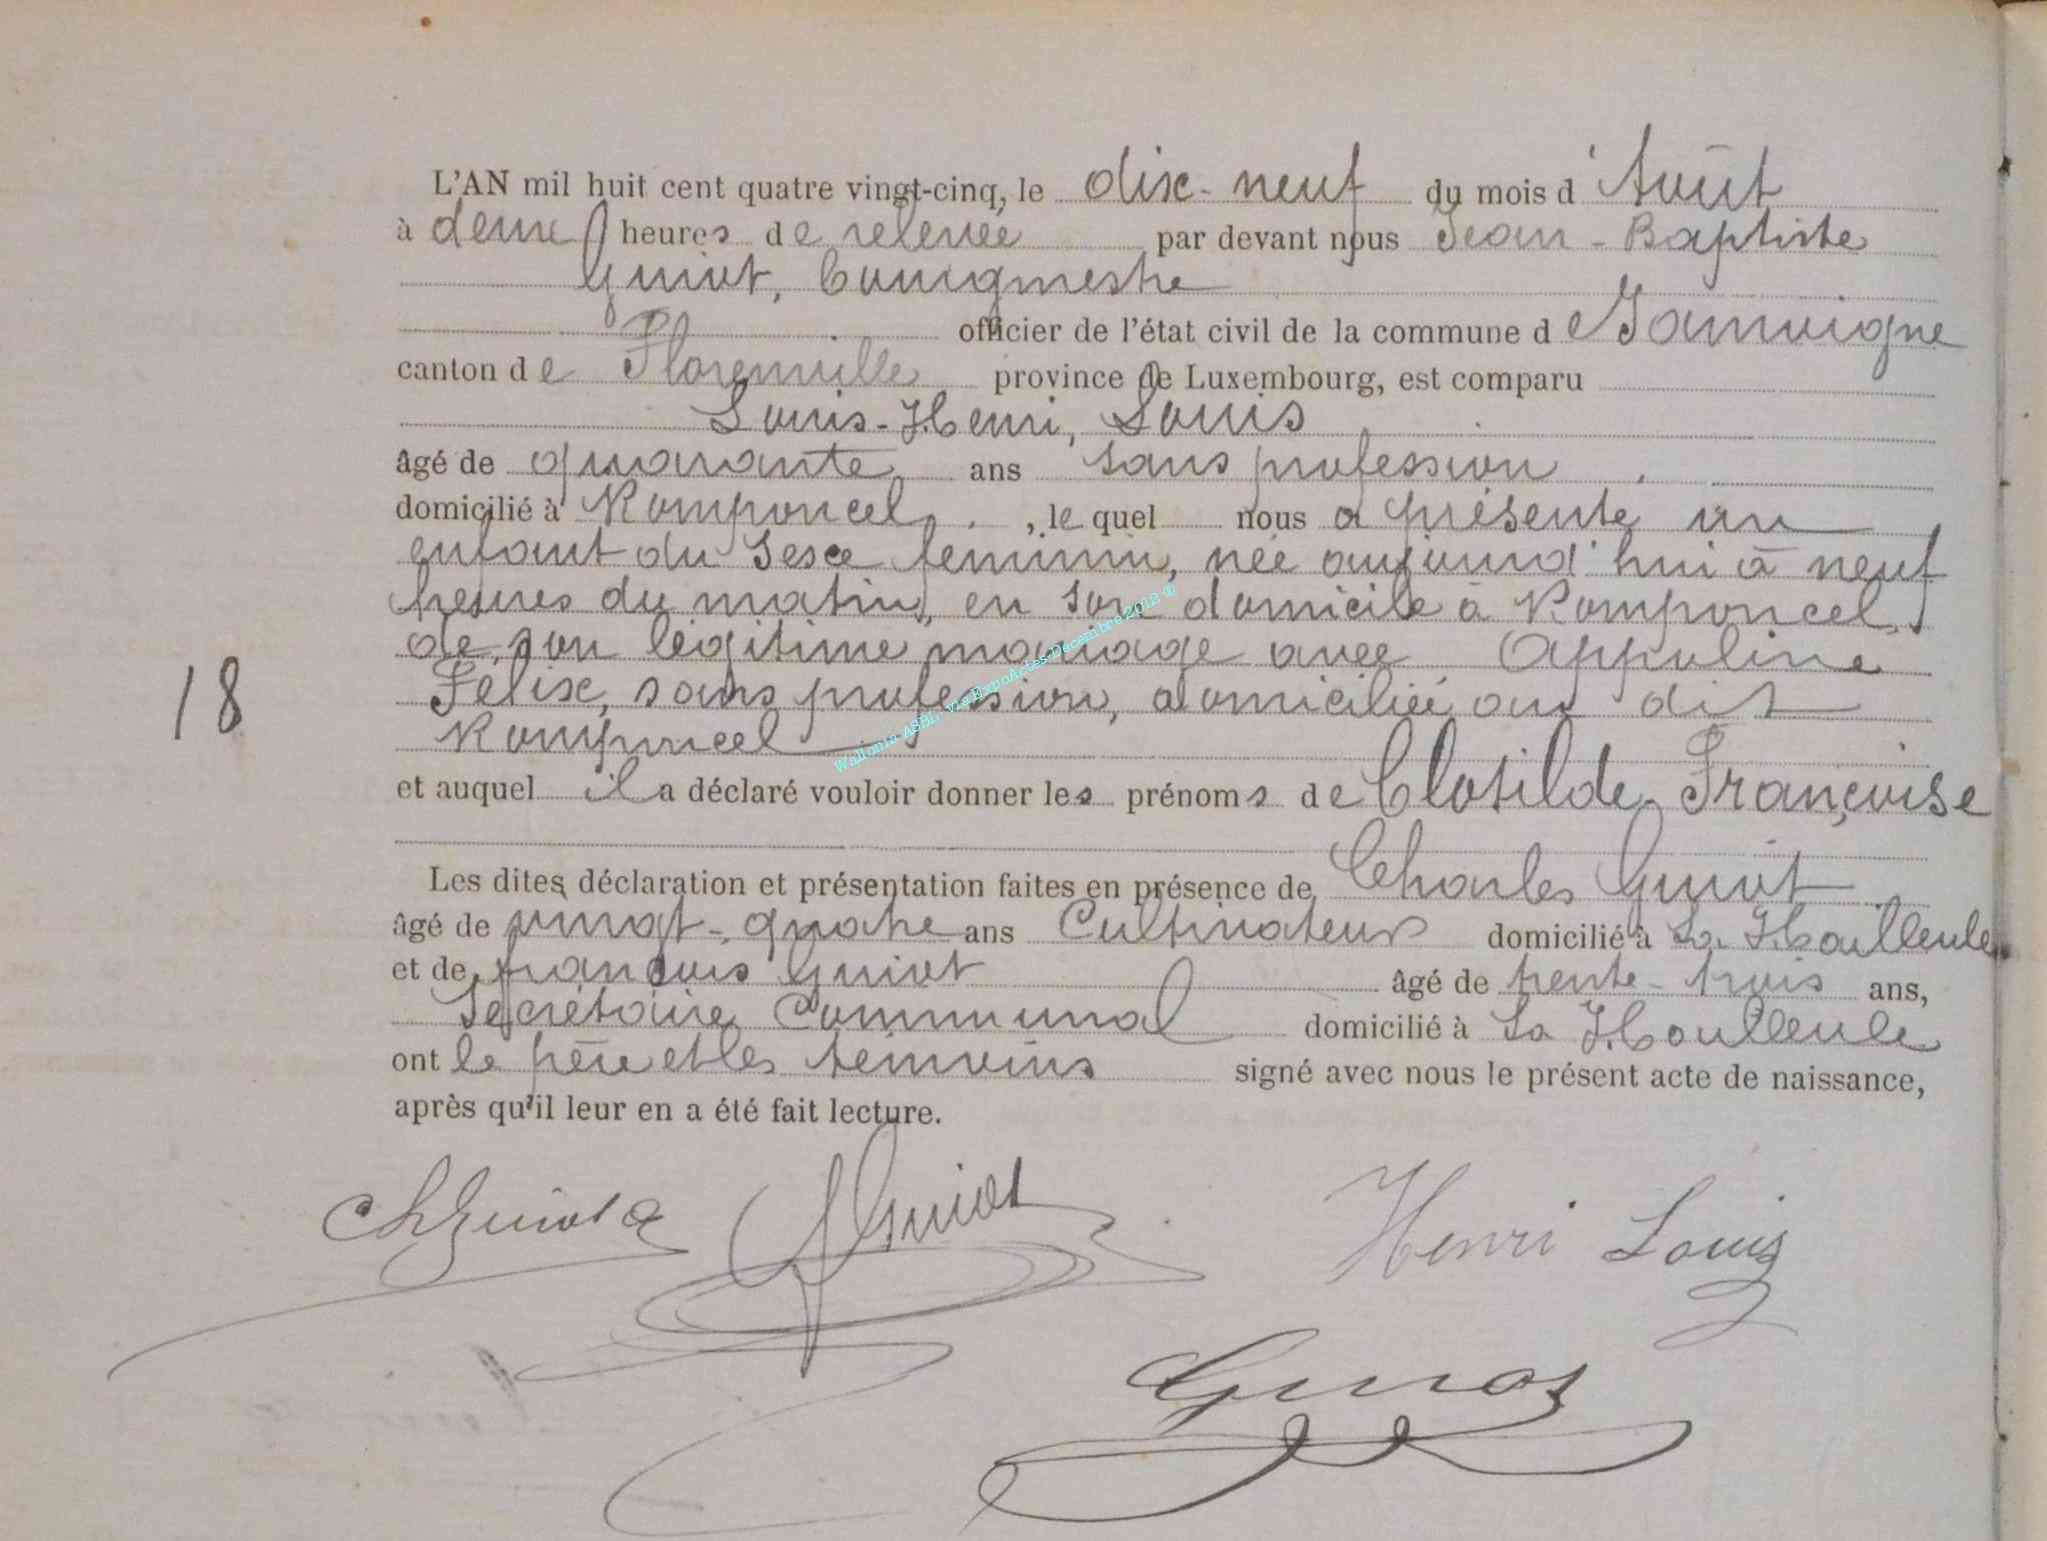 L'AN mil huit cent quatre vingt-cinq, le dix-neuf du mois d'Août
à deux heures de relevée par devant nous Jean-Baptiste
Guiot, bourgmestre
officier de l'état civil de la commune de Jamoigne
canton de Florenville province de Luxembourg, est comparu
Louis-Henri, Louis
âgé de quarante ans sans profession
domicilié à Romponcel, le quel nous a présenté un
enfant du sexe féminin, née aujourd'hui à neuf
heures du matin, en son domicile à Romponcel,
de son légitime mariage avec Appoline
Félix, sans profession, domiciliée au dit
Romponcel
18
et auquel il a déclaré vouloir donner les prénoms de Clotilde-Françoise
Les dites déclaration et présentation faites en présence de Charles Guiot
âgé de vingt-quatre ans Cultivateur domicilié à La Hailleule
et de françois Guiot âgé de trente-trois ans,
Secrétaire Communal domicilié à La Houlleule
ont le père et les témoins signé avec nous le présent acte de naissance,
après qu'il leur en a été fait lecture.
Ch Guiot Guiot Henri Louis
Guiot
Wallonia ASBL via ExpoActes Décembre 2012 ©